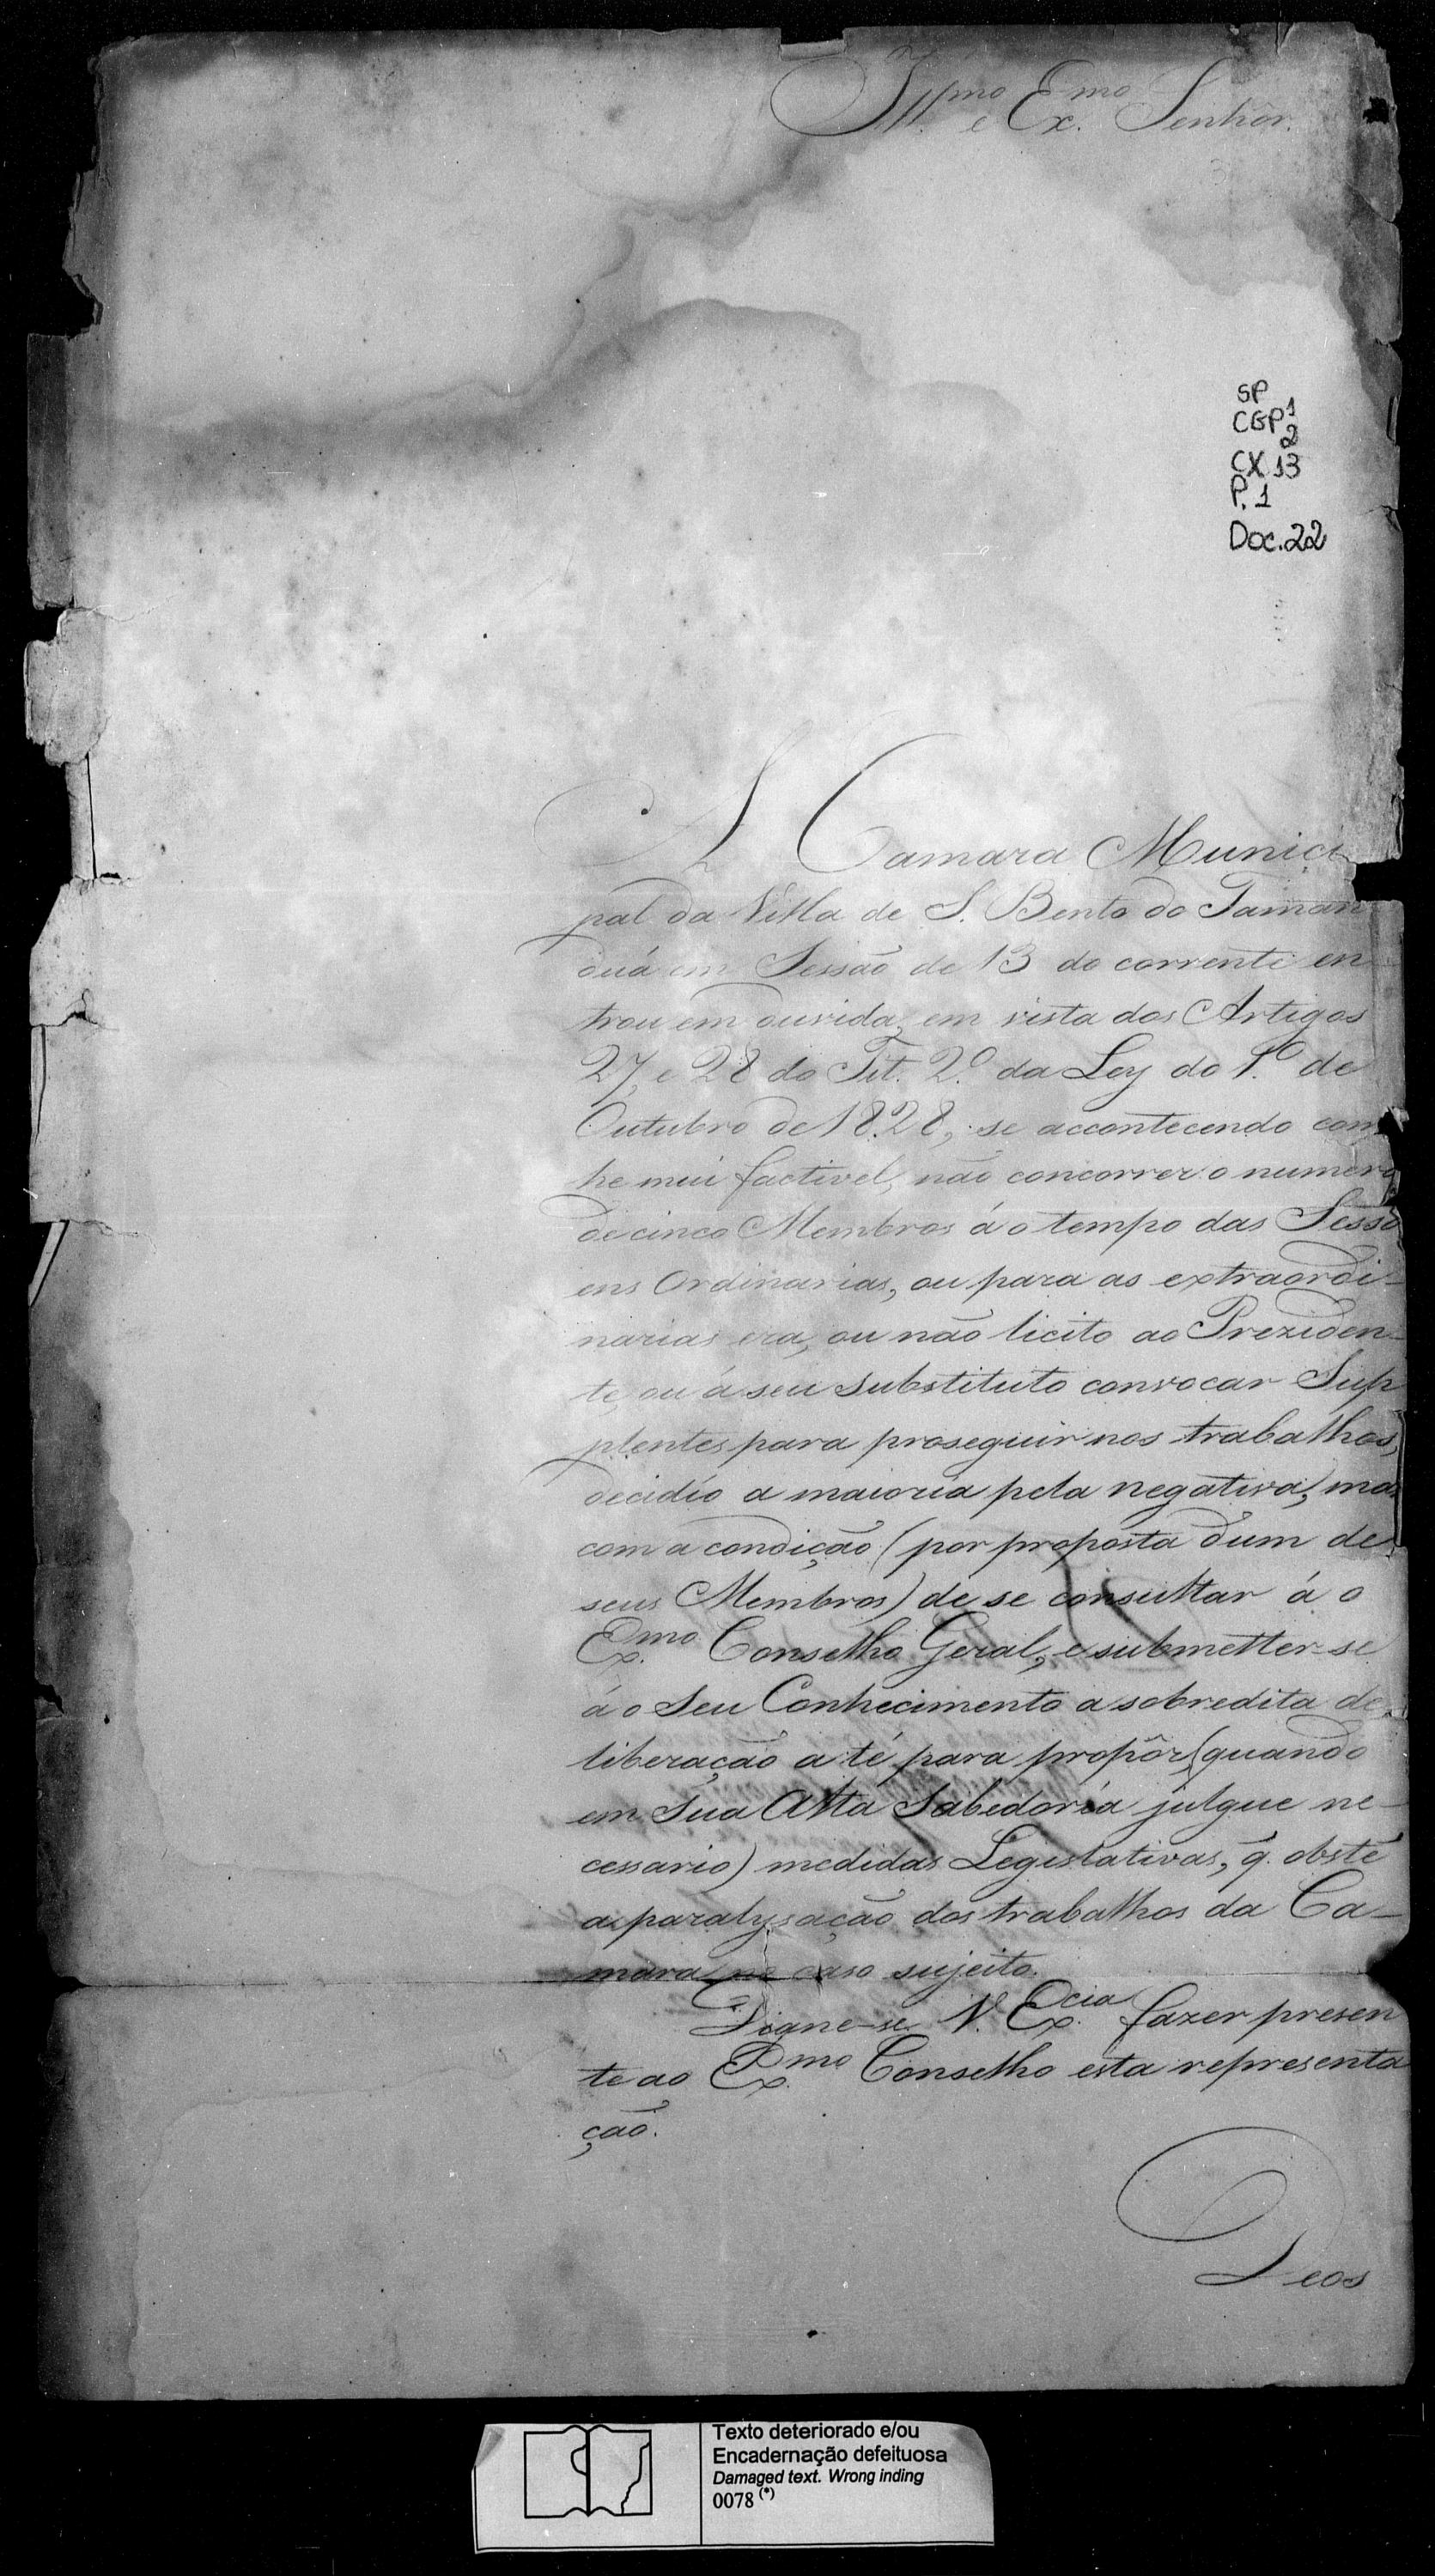 Ill.mo e Ex.mo Senhôr.
SP
CGP 1
2
CX 13
P. 1
Doc. 22
A Camara Munici
pal da Villa de S. Bento do Taman
duá em Sessão de 13 do corrente en
trou em duvida, em vista dos Artigos
27, e 28 do Tit. 2.º da Ley do 1.º de
Outubro de 1828, se accontecendo com
he mui factivel, não concorrer o numero
de cinco Membros á o tempo das Sesso
ens Ordinarias, ou para as extraordi-
narias era, ou não licito ao Preziden-
te, ou á seu substituto convocar Sup
plentes para proseguir nos trabalhos,
decidio a maioria pela negativa, mas
com a condição (por proposta dum de
seus Membros) de se consultar á o
Ex.mo Conselho Geral, e submetter-se
á o Seu Conhecimento a sobredita de
liberação a té para propôr (quando
em Sua Alta Sabedoria julgue ne-
cessario) medidas Legislativas, q. obste
a paralysação dos trabalhos da Ca-
mara no caso sujeito.
Digne-se V. Ex.cia fazer presen
te ao Ex.mo Conselho esta representa
ção.
Deos
Texto deteriorado e/ou
Encadernação defeituosa
Damaged text. Wrong inding
0078 (*)